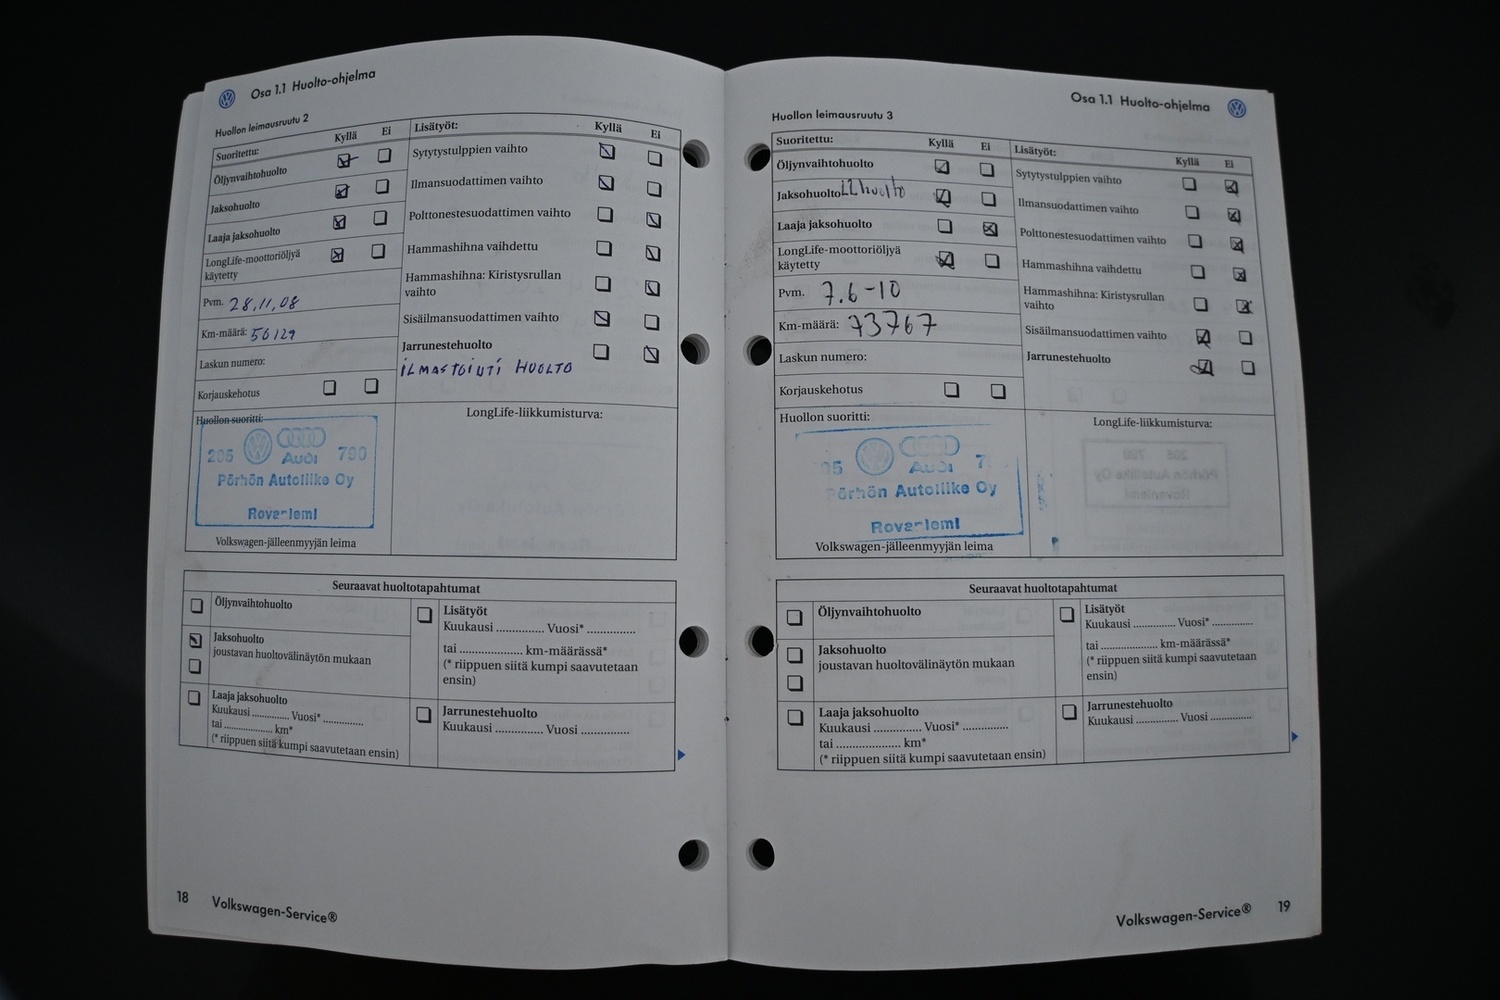 Osa 1.1 Huolto-ohjelma
Huollon leimausruutu 2
Suoritettu: Kyllä Ei
Öljynvaihtohuolto
Jaksohuolto
Laaja jaksohuolto
LongLife-moottoriöljyä
käytetty
Pvm. 28.11.08
Km-määrä: 56129
Laskun numero:
Korjauskehotus
Lisätyöt: Kyllä Ei
Sytytystulppien vaihto
Ilmansuodattimen vaihto
Polttonestesuodattimen vaihto
Hammashihna vaihdettu
Hammashihna: Kiristysrullan
vaihto
Sisäilmansuodattimen vaihto
Jarrunestehuolto
ILMASTOINTI HUOLTO
Huollon suoritti:
205 790
Audi
Pörhön Autoliike Oy
Rovaniemi
Volkswagen-jälleenmyyjän leima
LongLife-liikkumisturva:
Seuraavat huoltotapahtumat
Öljynvaihtohuolto
Jaksohuolto
joustavan huoltovälinäytön mukaan
Laaja jaksohuolto
Kuukausi .............. Vuosi* ...............
tai .................... km*
(* riippuen siitä kumpi saavutetaan ensin)
Lisätyöt
Kuukausi ............... Vuosi* ...............
tai .................... km-määrässä*
(* riippuen siitä kumpi saavutetaan
ensin)
Jarrunestehuolto
Kuukausi ............... Vuosi ...............
18 Volkswagen-Service®
Osa 1.1 Huolto-ohjelma
Huollon leimausruutu 3
Suoritettu: Kyllä Ei
Öljynvaihtohuolto
Jaksohuolto LL huolto
Laaja jaksohuolto
LongLife-moottoriöljyä
käytetty
Pvm. 7.6-10
Km-määrä: 73767
Laskun numero:
Korjauskehotus
Lisätyöt: Kyllä Ei
Sytytystulppien vaihto
Ilmansuodattimen vaihto
Polttonestesuodattimen vaihto
Hammashihna vaihdettu
Hammashihna: Kiristysrullan
vaihto
Sisäilmansuodattimen vaihto
Jarrunestehuolto
Huollon suoritti:
05 7
Audi
Pörhön Autoliike Oy
Rovaniemi
Volkswagen-jälleenmyyjän leima
LongLife-liikkumisturva:
Seuraavat huoltotapahtumat
Öljynvaihtohuolto
Jaksohuolto
joustavan huoltovälinäytön mukaan
Laaja jaksohuolto
Kuukausi ............... Vuosi* ...............
tai .................... km*
(* riippuen siitä kumpi saavutetaan ensin)
Lisätyöt
Kuukausi .............. Vuosi* ..............
tai .................... km-määrässä*
(* riippuen siitä kumpi saavutetaan
ensin)
Jarrunestehuolto
Kuukausi .............. Vuosi ..............
Volkswagen-Service® 19